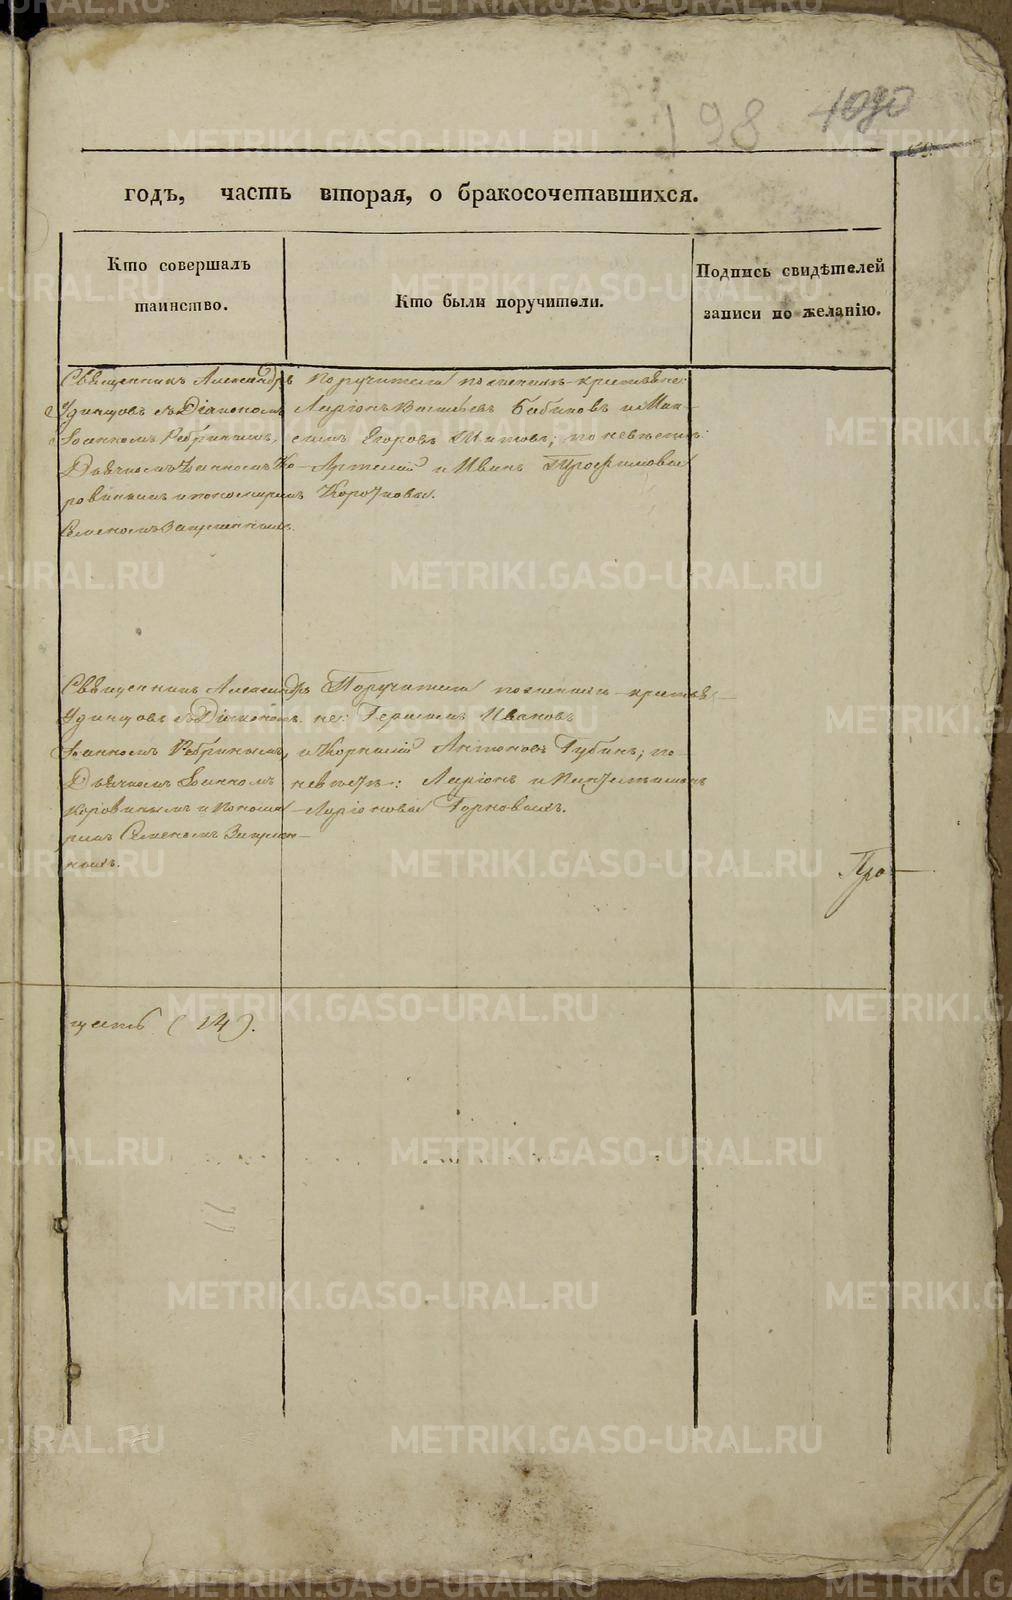 198 1090
годъ, часть вторая, о бракосочетавшихся.
Кто совершалъ
таинство.
Кто были поручители.
Подпись свидѣтелей
записи по желанію.
Священникъ Александръ
Удинцовъ съ Діакономъ
Іоанномъ Ребринымъ,
Дьячкомъ Іоанномъ Ко-
ровинымъ и пономаремъ
Семеномъ
Поручители по женихѣ крестьяне:
Ларіонъ Бабиновъ и Мак-
симъ Егоровъ Титовъ; по невѣстѣ:
Артемій и Иванъ Трофимовы
Священникъ Александръ
Удинцовъ съ Діакономъ
Іоанномъ Ребринымъ,
Дьячкомъ Іоанномъ
Коровинымъ и Понома
ремъ Семеномъ
Поручители по женихѣ крестья-
не: Герасимъ Ивановъ
и Корнилій Антоновъ Губинъ; по
невѣстѣ: Ларіонъ и
Ларіоновы Горновыхъ.
Про-
(14).
METRIKI.GASO-URAL.RU